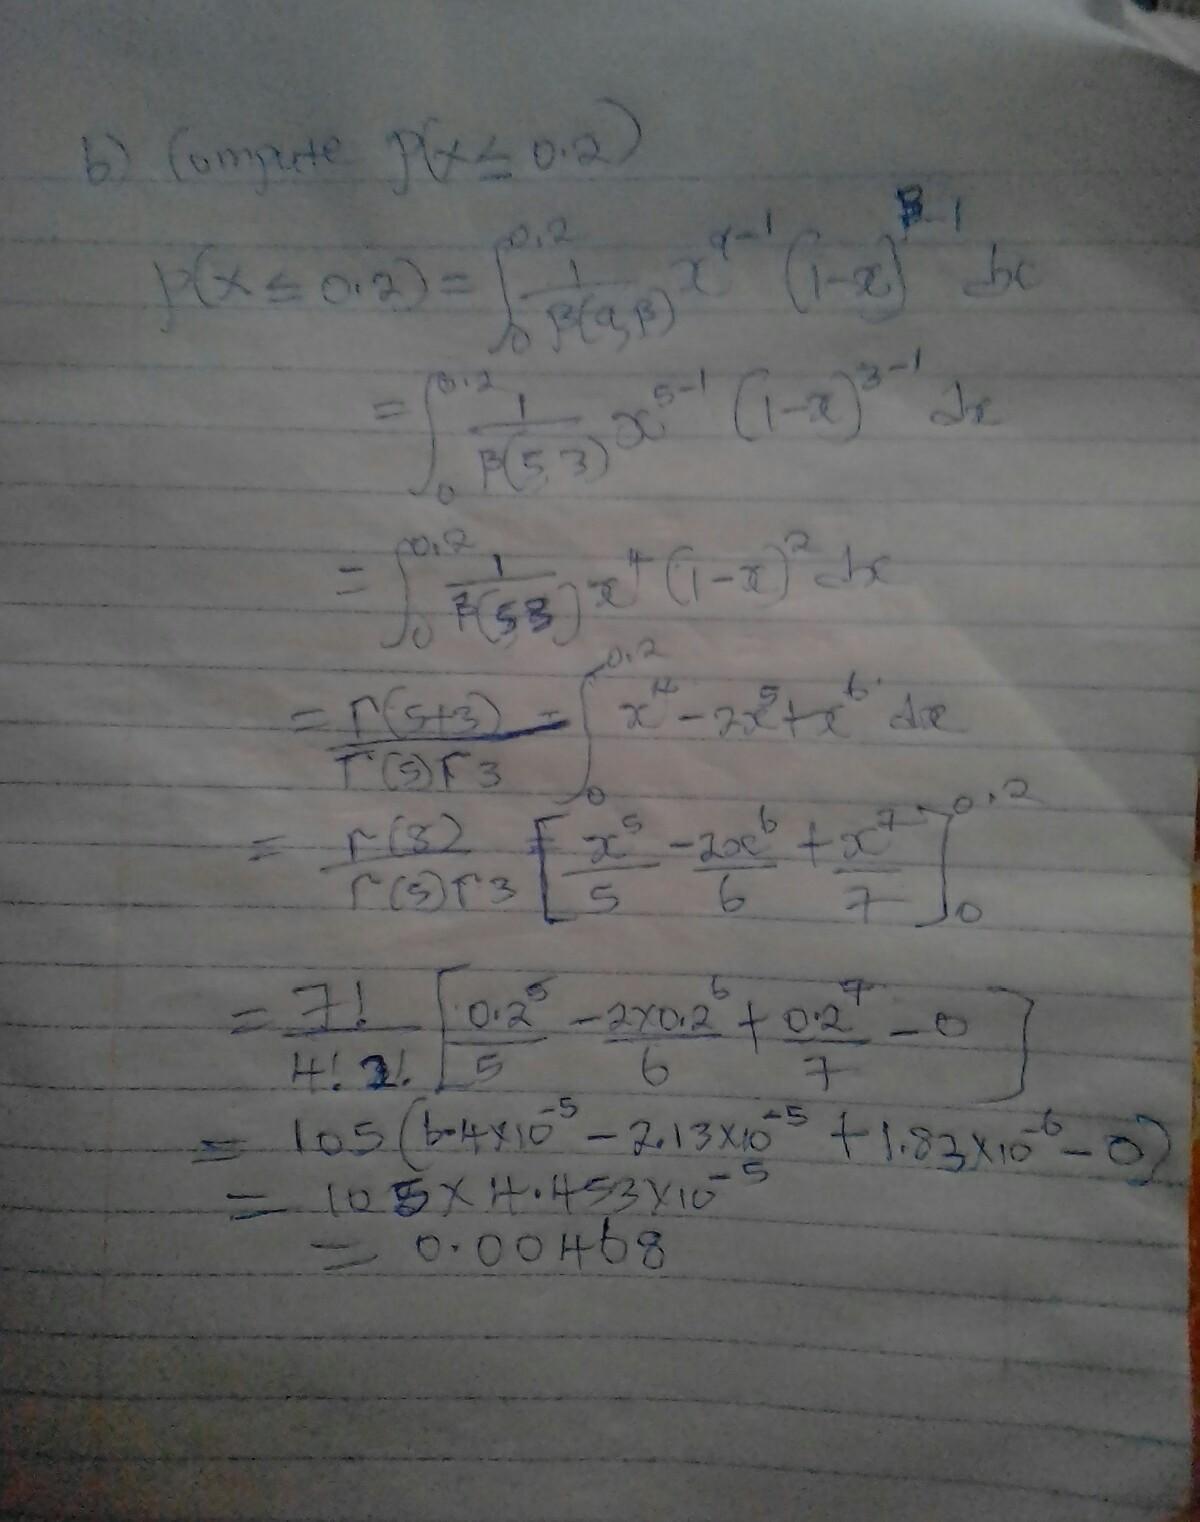 b) Compute P(x ≤ 0.2)
P(x ≤ 0.2) = ∫₀^0.2 1/β(α,β) x^α-1 (1-x)^β-1 dx
= ∫₀^0.2 1/β(5,3) x^5-1 (1-x)^3-1 dx
= ∫₀^0.2 1/β(5,3) x^4 (1-x)^2 dx
= Γ(5+3)/Γ(5)Γ3 ∫₀^0.2 x^4 - 2x^5 + x^6 dx
= Γ(8)/Γ(5)Γ3 [x^5/5 - 2x^6/6 + x^7/7]₀^0.2
= 7!/4!2! [0.2^5/5 - 2×0.2^6/6 + 0.2^7/7 - 0]
= 105 (6.4×10^-5 - 2.13×10^-5 + 1.83×10^-6 - 0)
= 105 × 4.453×10^-5
= 0.00468